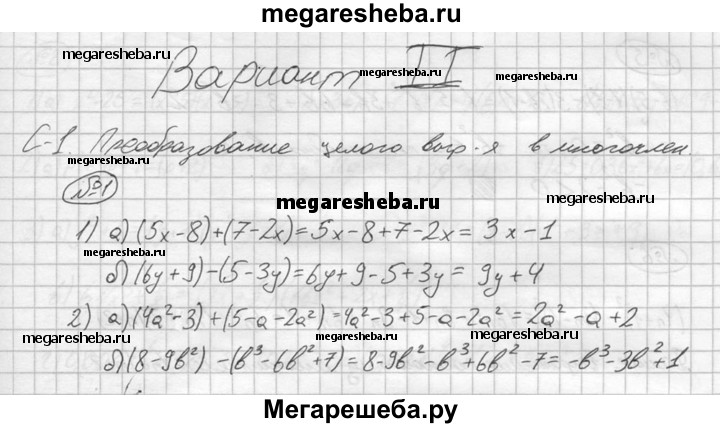 megaresheba.ru
megaresheba.ru
Вариант II
megaresheba.ru
megaresheba.ru
С-1. Преобразование целого выр-я в многочлен.
megaresheba.ru
megaresheba.ru
№1
megaresheba.ru
1) а) (5x-8)+(7-2x)=5x-8+7-2x= 3x-1
megaresheba.ru
megaresheba.ru
б) (6y+9)-(5-3y)=6y+9-5+3y= 9y+4
2) а) (4a²-3)+(5-a-2a²)=4a²-3+5-a-2a²=2a²-a+2
megaresheba.ru
megaresheba.ru
megaresheba.ru
б) (8-9b²)-(b³-6b²+7)=8-9b²-b³+6b²-7=-b³-3b²+1
Мегарешеба.ру